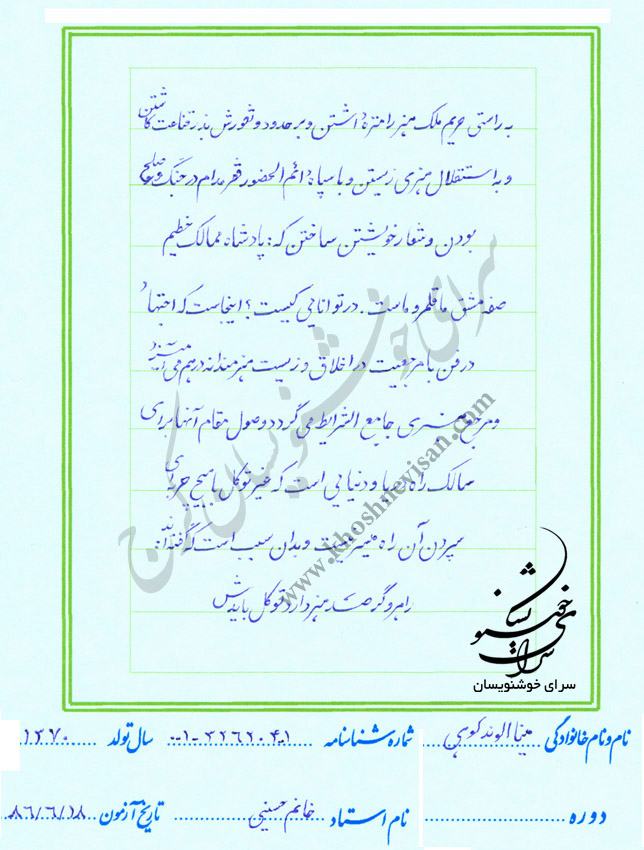 به راستی حریم ملک هنر را منزه داشتن و بر حدود و ثغورش بذر قناعت کاشتن
و به استقلال هنری زیستن و با سپاه دائم الحضور فقر مدام در جنگ و صلح
بودن و شعار خویشتن ساختن که: پادشاه ممالک خطیم
صفه مشق ما قلمرو ماست. در توانایی کیست؟ اینجاست که اجتهاد
در فن با مرجعیت در اخلاق و زیست هنرمندانه درهم می آمیزد
و مرجع هنری جامع الشرایط می گردد وصول مقام آنها برای
سالک راه رویا و دنیایی است که غیر توکل با هیچ چیز
سپردن آن راه میسر نیست و بدان سبب است که گفته اند:
راهرو گر صد هنر دارد توکل بایدش
سرای خوشنویسان کرج
www.khoshnevisan.com
سرای خوشنویسان
نام و نام خانوادگی مینا الوند کوهی شماره شناسنامه ۰۰۱-۲۲۶۲۰۴-۱ سال تولد ۱۳۷۰
دوره نام استاد خانم حسینی تاریخ آزمون ۸۶/۶/۱۸